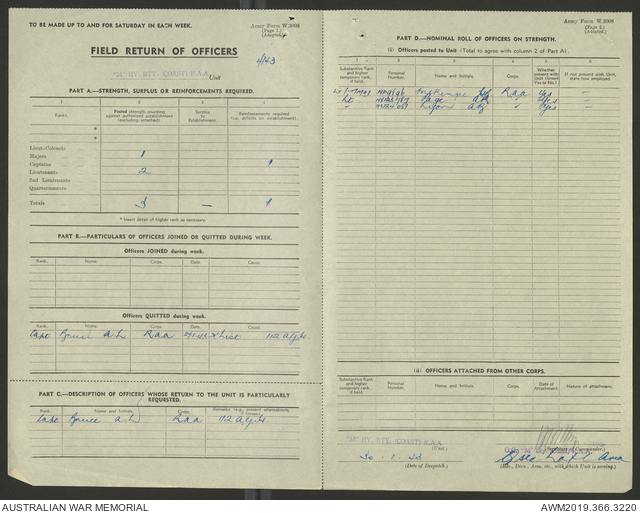 TO BE MADE UP TO AND FOR SATURDAY IN EACH WEEK.
Army Form W.3008
(Page 1.)
(Adapted.)
FIELD RETURN OF OFFICERS
4/43
"M" HY. BTY. (COAST) R.A.A. Unit
PART A.—STRENGTH, SURPLUS OR REINFORCEMENTS REQUIRED.
1 2 3 4
Ranks. Posted strength counting against authorized establishment (excluding attached). Surplus to Establishment. Reinforcements required (i.e., deficits on establishment).
*
*
Lieut-Colonels
Majors 1
Captains 1
Lieutenants 2
2nd Lieutenants
Quartermasters
Totals 3 — 1
* Insert detail of higher rank as necessary.
PART B.—PARTICULARS OF OFFICERS JOINED OR QUITTED DURING WEEK.
Officers JOINED during week.
Rank. Name. Corps. Date. Cause.
Officers QUITTED during week.
Rank. Name. Corps. Date. Cause.
Capt Bruce A.L. RAA X List 112 A.G.H.
PART C.—DESCRIPTION OF OFFICERS WHOSE RETURN TO THE UNIT IS PARTICULARLY REQUESTED.
Rank. Name and Initials. Corps. Remarks (e.g., present whereabouts, if known).
Capt Bruce A.L. RAA 112 A.G.H.
Army Form W.3008
(Page 2.)
(Adapted).
PART D.—NOMINAL ROLL OF OFFICERS ON STRENGTH.
(i) Officers posted to Unit (Total to agree with column 2 of Part A).
1 2 3 4 5 6
Substantive Rank and higher temporary rank, if held. Personal Number. Name and Initials. Corps. Whether present with Unit (Insert Yes or No.) If not present with Unit, state how employed.
RAA Yes —
Lt Page Yes —
" " Yes —
(ii) OFFICERS ATTACHED FROM OTHER CORPS.
Substantive Rank and higher temporary rank, if held. Personal Number. Name and Initials. Corps. Date of Attachment. Nature of attachment.
"M" HY. BTY. (COAST) R.A.A.
(Unit.)
(Signature of Commander.)
30.1.43
(Date of Despatch.)
Area
(Bde., Divn., Area, etc., with which Unit is serving.)
AUSTRALIAN WAR MEMORIAL
AWM2019.366.3220